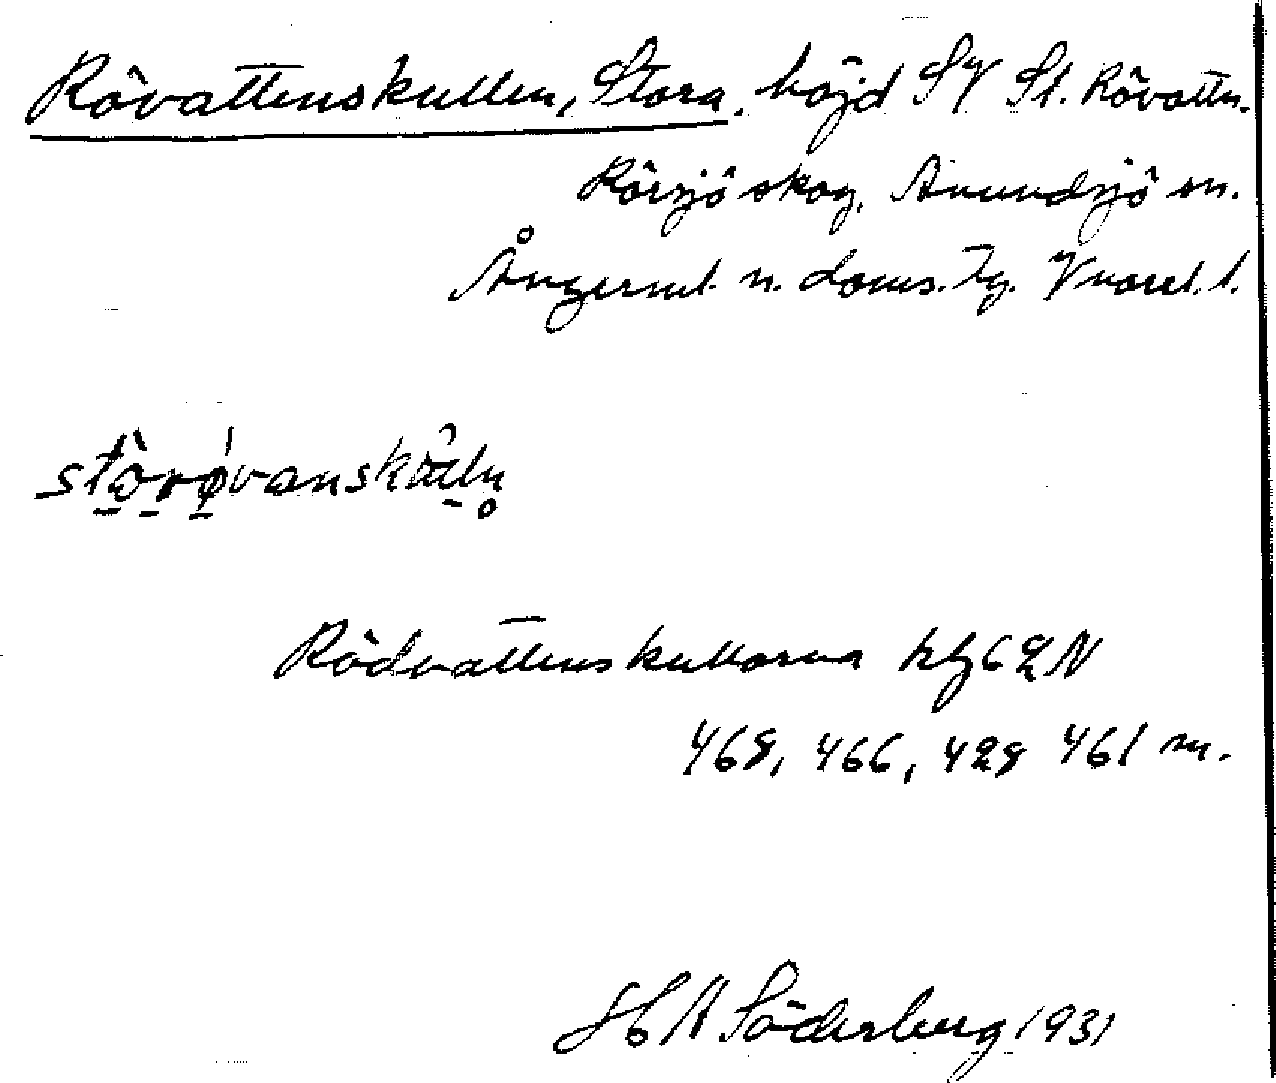 Rövattenskullen, Stora, höjd SV St. Rövattn.
Rörsjö skog, Anundsjö sn.
Ångerml. n. doms. Tg. Vnorrl. l.
störøvanskûln
Rödvattenskullarna kbl 62 N
468, 466, 428 461 m.
H A Söderberg 1931